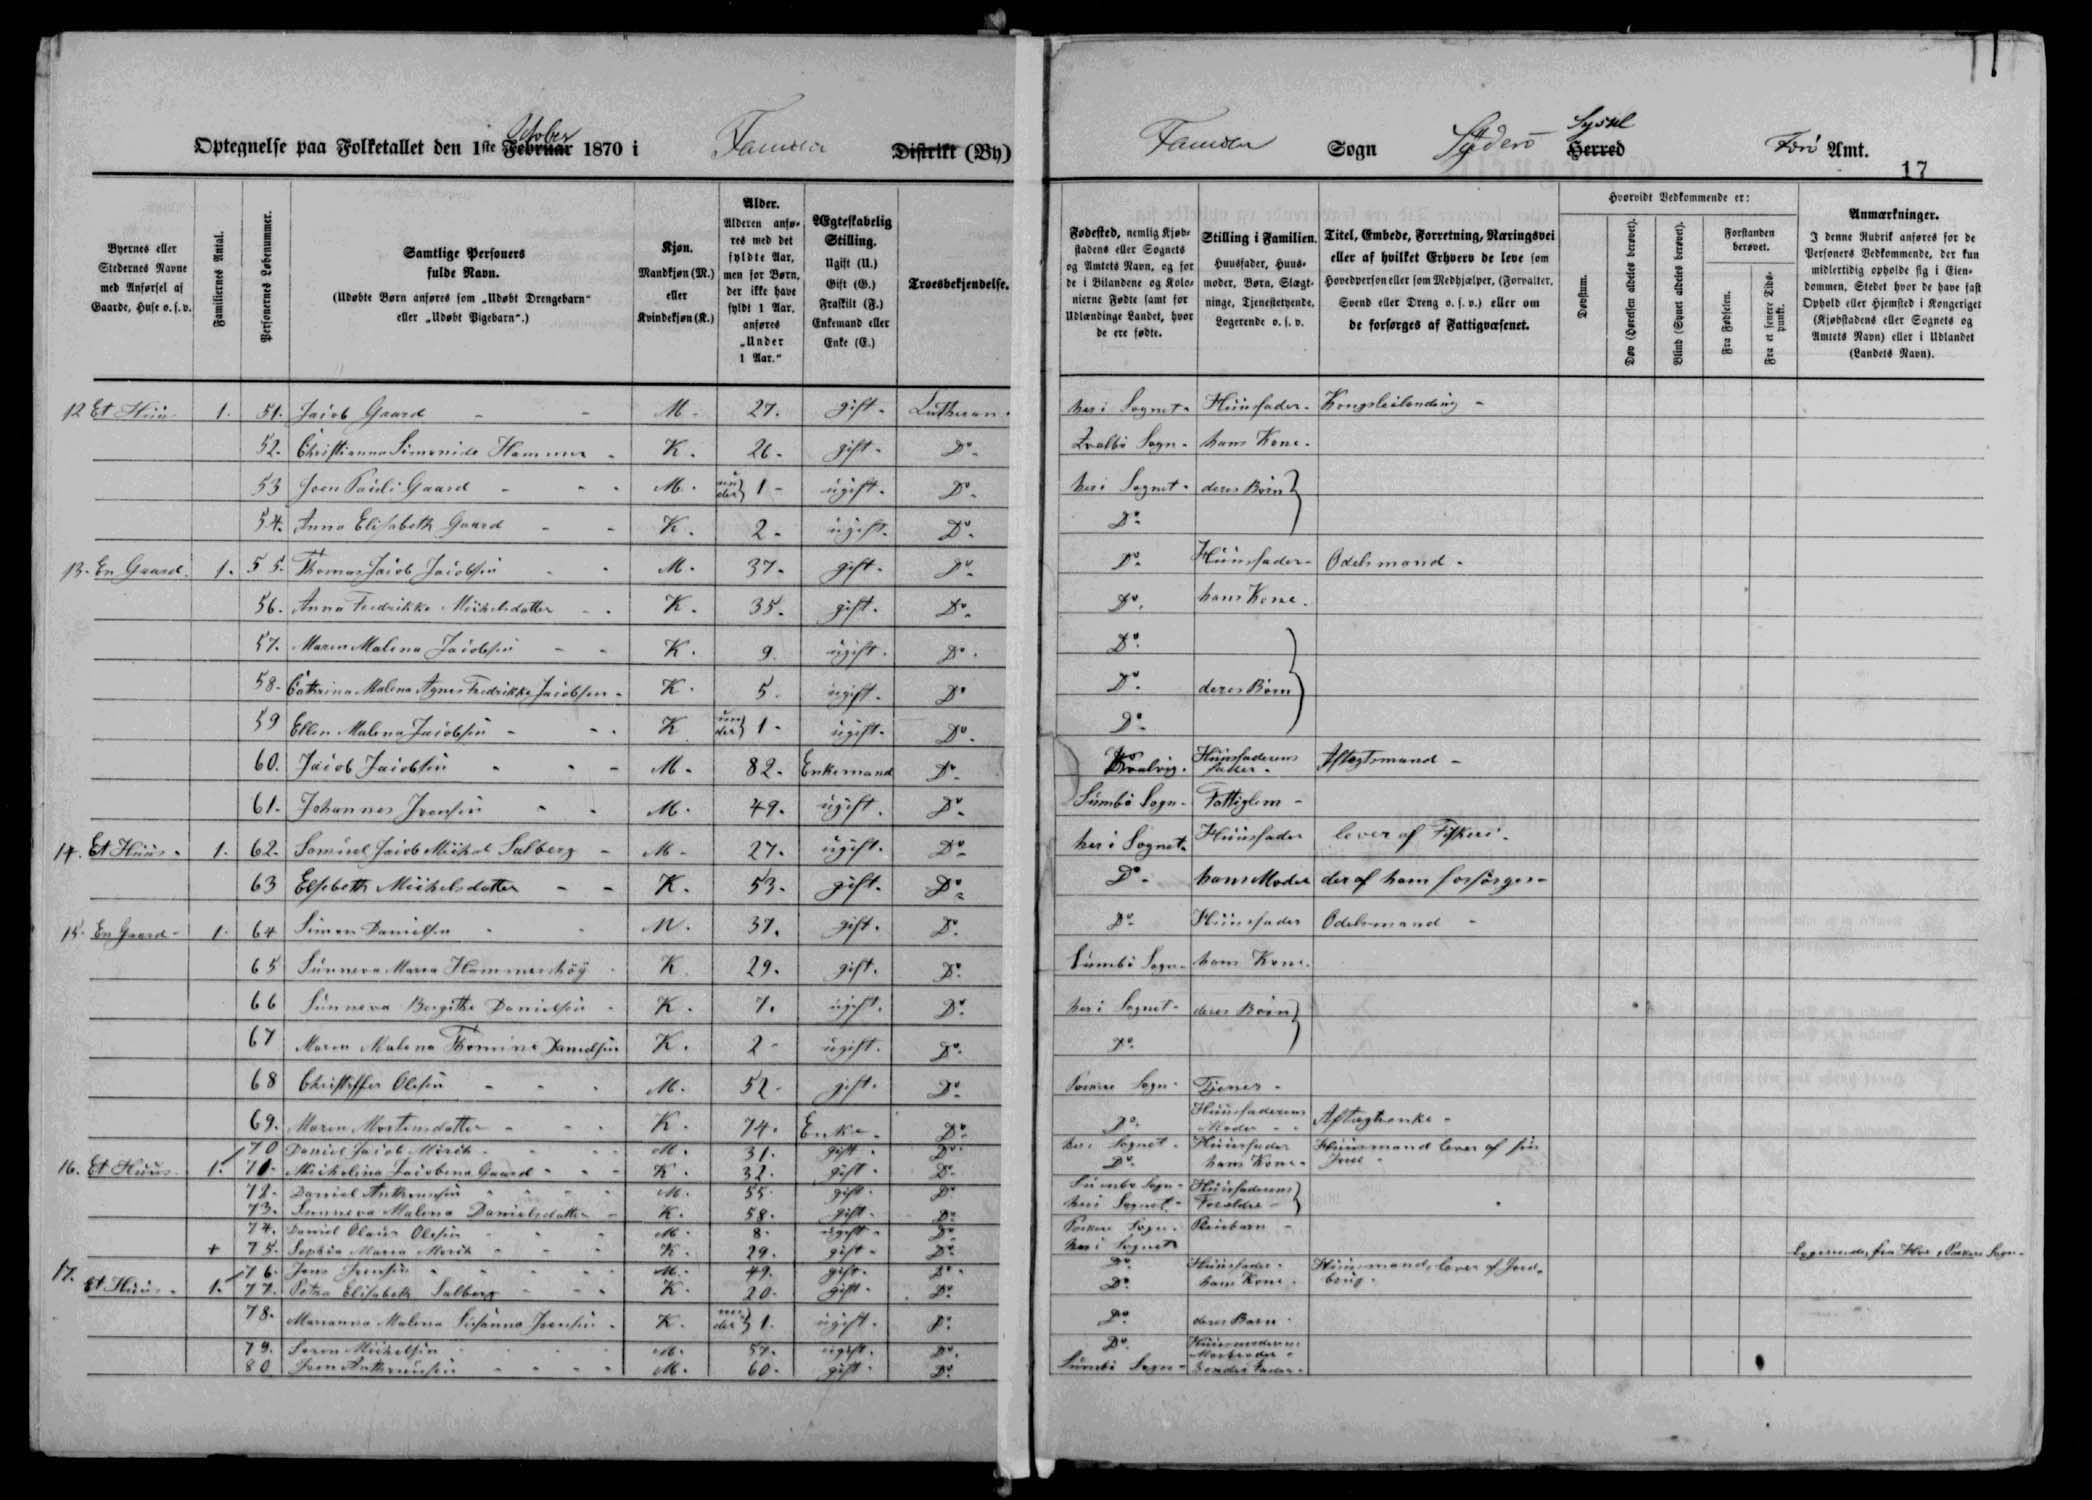 Optegnelse paa Folketallet den 1ste Februar October 1870 i Famien Distrikt (By)
Famien Sogn Syderö Herred Syssel Färö Amt.
17
Byernes eller Stedernes Navne med Anførsel af Gaarde, Huse o. s. v.
Familiernes Antal.
Personernes Løbenummer.
Samtlige Personers fulde Navn.
(Udøbte Børn anføres som „Udøbt Drengebarn“ eller „Udøbt Pigebarn“.)
Kjøn.
Mandkjøn (M.) eller Kvindekjøn (K.)
Alder.
Alderen anføres med det fyldte Aar, men for Børn, der ikke have fyldt 1 Aar, anføres „Under 1 Aar.“
Ægteskabelig Stilling.
Ugift (U.) Gift (G.) Fraskilt (F.) Enkemand eller Enke (E.)
Troesbekjendelse.
Fødested, nemlig Kjøbstadens eller Sognets og Amtets Navn, og for de i Bilandene og Kolonierne Fødte samt for Udlændinge Landet, hvor de ere fødte.
Stilling i Familien.
Huusfader, Huusmoder, Børn, Slægtninge, Tjenestetyende, Logerende o. s. v.
Titel, Embede, Forretning, Næringsvei eller af hvilket Erhverv de leve som Hovedperson eller som Medhjælper, (Forvalter, Svend eller Dreng o. s. v.) eller om de forsørges af Fattigvæsenet.
Hvorvidt Vedkommende er:
Døvstum.
Døv (Hørelsen aldeles berøvet).
Blind (Synet aldeles berøvet).
Forstanden berøvet.
Fra Fødselen.
Fra et senere Tidspunkt.
Anmærkninger.
I denne Rubrik anføres for de Personers Vedkommende, der kun midlertidig opholde sig i Eiendommen, Stedet hvor de have fast Ophold eller Hjemsted i Kongeriget (Kjøbstadens eller Sognets og Amtets Navn) eller i Udlandet (Landets Navn).
12 Et Huus 1. 51. Jacob Gaard M. 27. gift. Lutheran. her i Sognet. Huusfader. Kongsleilending
52. Christianna Simonide Hammer K. 26. gift. Do. Qvalbö Sogn. hans Kone.
53 Joen Pauli Gaard M. under 1 ugift. Do. her i Sognet. deres Börn
54. Anna Elisabeth Gaard K. 2. ugift. Do. Do.
13. En Gaard. 1. 55. Thomas Jacob Jacobsen M. 37. gift. Do. Do. Huusfader. Odelsmand.
56. Anna Fredrikke Michelsdatter K. 35. gift. Do. Do. hans Kone.
57. Maren Malena Jacobsen K. 9. ugift. Do. Do.
58. Cathrina Malena Agnes Fredrikke Jacobsen K. 5. ugift. Do Do. deres Börn
59 Ellen Malena Jacobsen K under 1 ugift. Do. Do.
60. Jacob Jacobsen M. 82. Enkemand Do. Huusfaderens fader. Aftægtsmand
61. Johannes Joensen M. 49. ugift. Do. Sumbö Sogn. Fattiglem
14. Et Huus. 1. 62. Samuel Jacob Michal Salberg M. 27. ugift. Do. her i Sognet. Huusfader lever af Fiskeri.
63 Elsebeth Michelsdatter K. 53. gift. Do. Do. hans Moder der af ham forsörges
15. En Gaard 1. 64 Simon Danielsen M. 37. gift. Do. Do. Huusfader Odelsmand
65 Sunneva Maria Hammershöy K. 29. gift. Do. Sumbö Sogn. hans Kone.
66 Sunneva Bergithe Danielsen K. 7. ugift. Do. her i Sognet. deres Börn
67 Maren Malena Thomine Danielsen K. 2 ugift. Do. Do.
68 Christoffer Olesen M. 52. gift. Do. Porkere Sogn. Tjener.
69. Maren Mortensdatter K. 74. Enke. Do. Do. Huusfaderens Moder Aftægtsenke
70 Daniel Jacob Mörck M. 31. gift. Do. her i Sognet. Huusfader Huusmand lever af sin Jord
16. Et Huus. 1. 71. Michelina Jacobena Gaard K. 32. gift. Do. Do. hans Kone.
72. Daniel Anthoniusen M. 55. gift. Do Sumbö Sogn. Huusfaderens
73. Sunneva Malena Danielsdatter K. 58. gift. Do. her i Sognet. Forældre
74. Daniel Olaus Olesen M. 8. ugift. Do. Porkere Sogn. Pleiebarn
+ 75. Sophia Maria Mörck K. 29. gift. Do. her i Sognet
17. 76. Jens Joensen M. 49. gift. Do. Do. Huusfader. Huusmand, lever af Jordbrug.
Et Huus. 1. 77. Petra Elisabeth Salberg K. 20. gift. Do. Do. hans Kone.
78. Marianna Malena Susanna Joensen K. under 1. ugift. Do. Do. deres Barn.
79. Soren Michelsen M. 57. ugift. Do. Do. Huusmoderens Morbroder
80 Joen Anthoniusen M. 60. gift. Do. Sumbö Sogn.